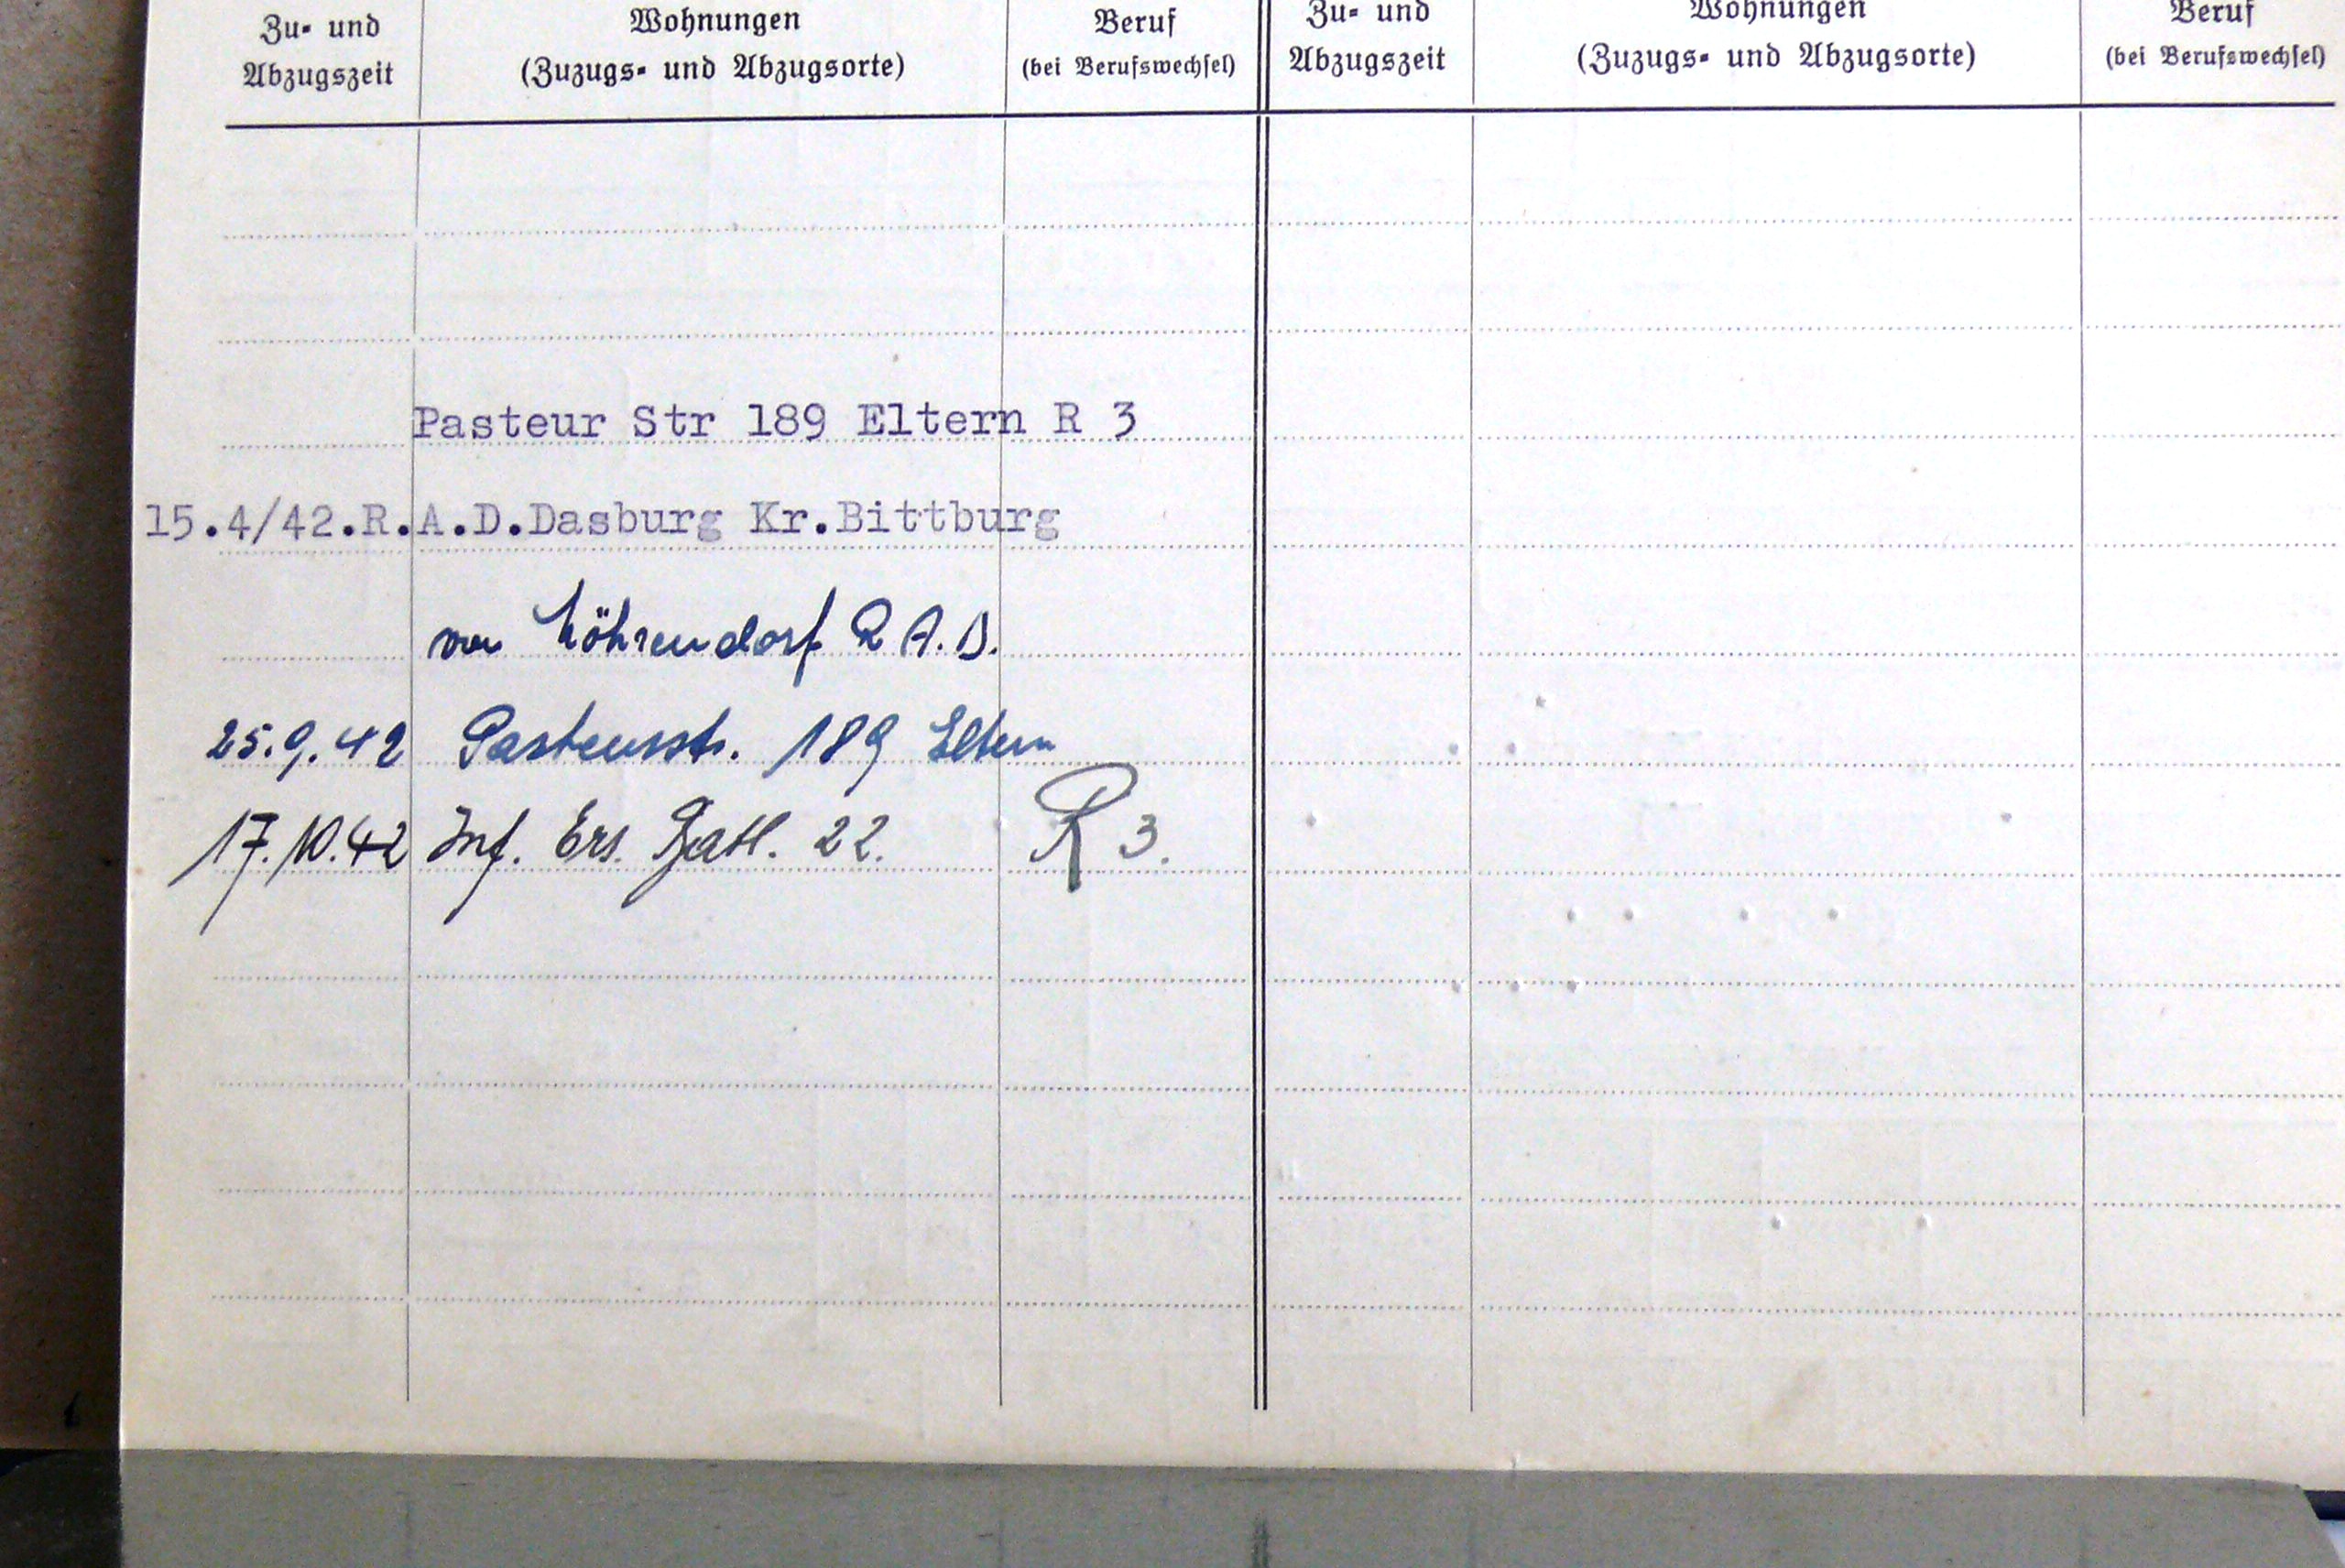 Zu- und Abzugszeit
Wohnungen
(Zuzugs- und Abzugsorte)
Beruf
(bei Berufswechsel)
Zu- und Abzugszeit
Wohnungen
(Zuzugs- und Abzugsorte)
Beruf
(bei Berufswechsel)
Pasteur Str 189 Eltern R 3
15.4/42.R.A.D.Dasburg Kr.Bittburg
von Möhrendorf R A.D.
25.9.42 Pasteurstr. 189 Eltern
17.10.42 Inf. Ers. Batl. 22. R 3.